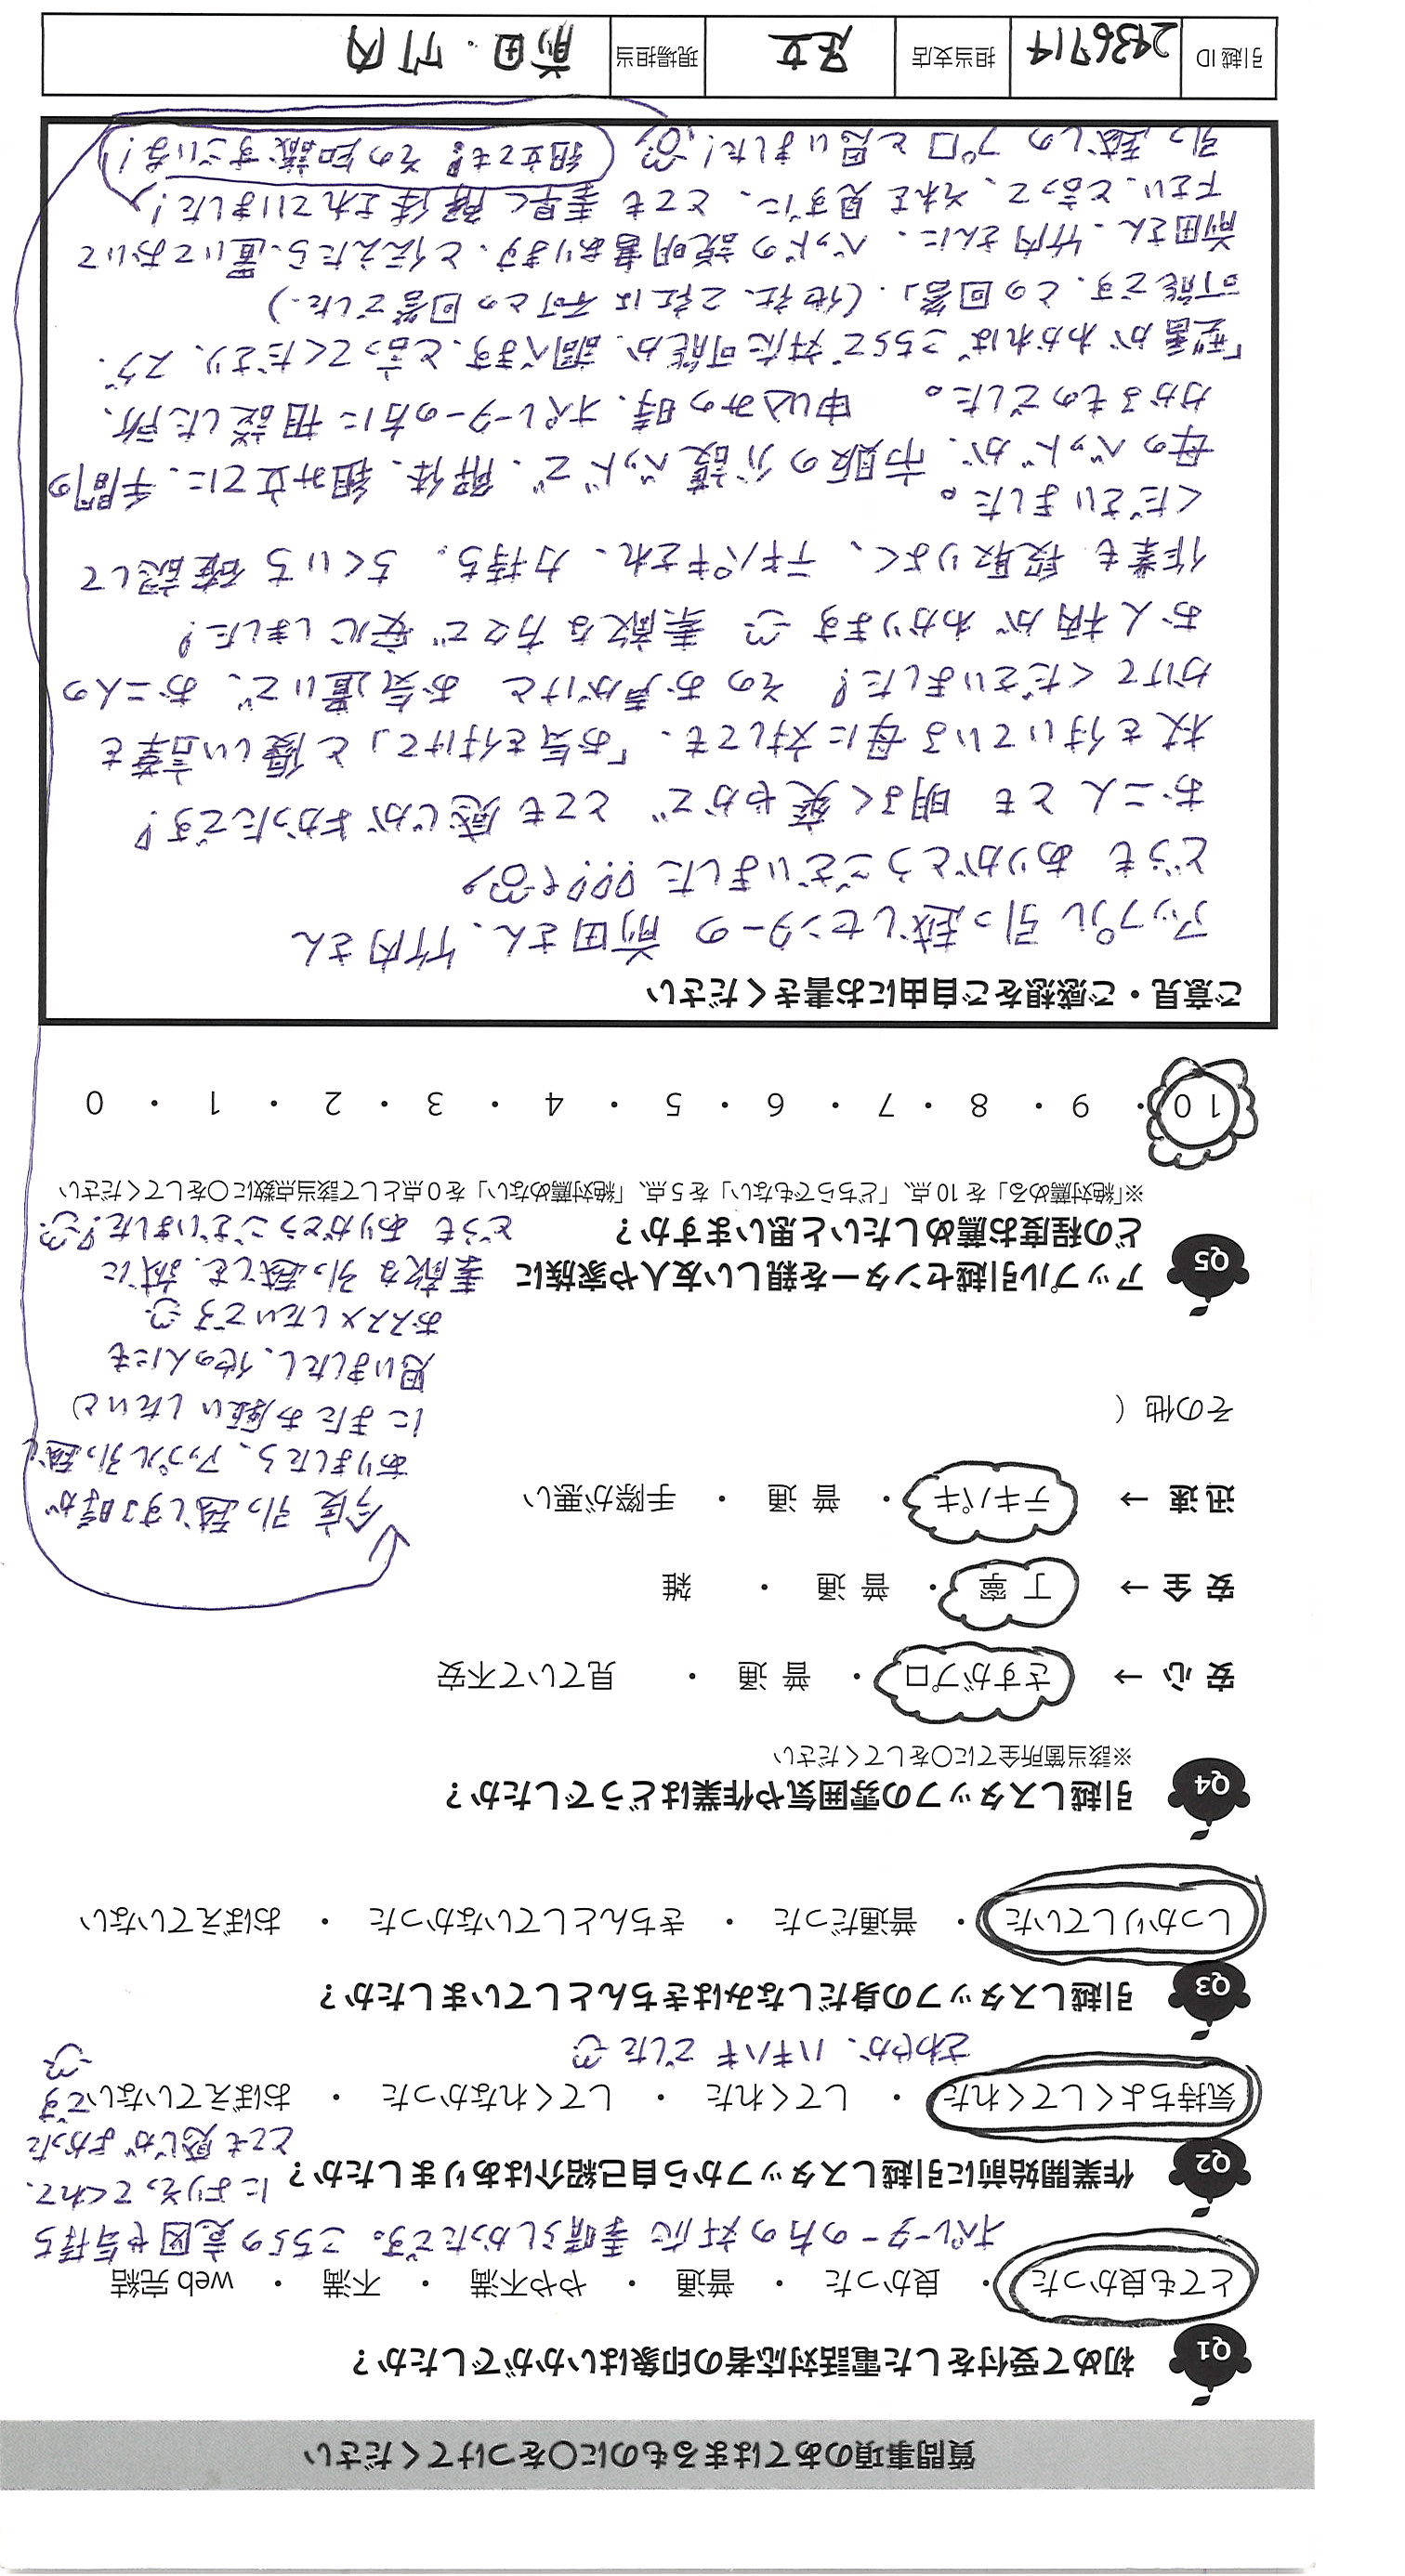 質問事項のあてはまるものに〇をつけてください
Q1 初めて受付をした電話対応者の印象はいかがでしたか？
とても良かった ・ 良かった ・ 普通 ・ やや不満 ・ 不満 ・ web 完結
オペレーターの方の対応素晴らしかったです。こちらの意図や気持ち
によりそってくれて、
とても感じがよかった
です
Q2 作業開始前に引越しスタッフから自己紹介はありましたか？
気持ちよくしてくれた ・ してくれた ・ してくれなかなかった ・ おぼえていない
さわやか、ハキハキでした
Q3 引越しスタッフの身だしなみはきちんとしていましたか？
しっかりしていた ・ 普通だった ・ きちんとしていなかった ・ おぼえていない
Q4 引越しスタッフの雰囲気や作業はどうでしたか？
※該当箇所全てに〇をしてください
安 心 → さすがプロ ・ 普 通 ・ 見ていて不安
安 全 → 丁 寧 ・ 普 通 ・ 雑
迅 速 → テキパキ ・ 普 通 ・ 手際が悪い
その他（
今度引っ越しする時が
ありましたら、アップル引っ越し
にまたお願いしたいと
思いましたし、他の人にも
おススメしたいです
素敵な引っ越しを、誠に
どうもありがとうございました！
Q5 アップル引越センターを親しい友人や家族に
どの程度お薦めしたいと思いますか？
※「絶対薦める」を 10 点、「どちらでもない」を 5 点、「絶対薦めない」を 0 点として該当点数に〇をしてください
10 ・ 9 ・ 8 ・ 7 ・ 6 ・ 5 ・ 4 ・ 3 ・ 2 ・ 1 ・ 0
ご意見・ご感想をご自由にお書きください
アップル引っ越しセンターの前田さん、竹内さん
どうもありがとうございました!!!
お二人とも明るく爽やかでとても感じがよかったです！
杖を付いている母に対しても、「お気を付けて」と優しい言葉を
かけてくださいました！そのお声がけとお気遣いで、お二人の
お人柄がわかります 素敵な方々で安心しました！
作業も段取りよく、テキパキされ、力持ち。ちくいち確認して
くださいました。
母のベッドが、市販の介護ベッドで、解体、組み立てに、手間の
かかるものでした。申し込みの時、オペレーターの方に相談した所、
「型番がわかればこちらで対応可能か、調べます、と言ってくださり、スグ、
可能です、との回答」.（他社、2社は不可との回答でした.）
前田さん、竹内さんに、ベッドの説明書あります、と伝えたら、置いておいて
下さい、と言って、それを見ずに、とても素早く解体されていました！
引っ越しのプロと思いました！（組立ても！その知識すごいな！）
引越 ID 2436714 担当支店 足立 現場担当 前田・竹内